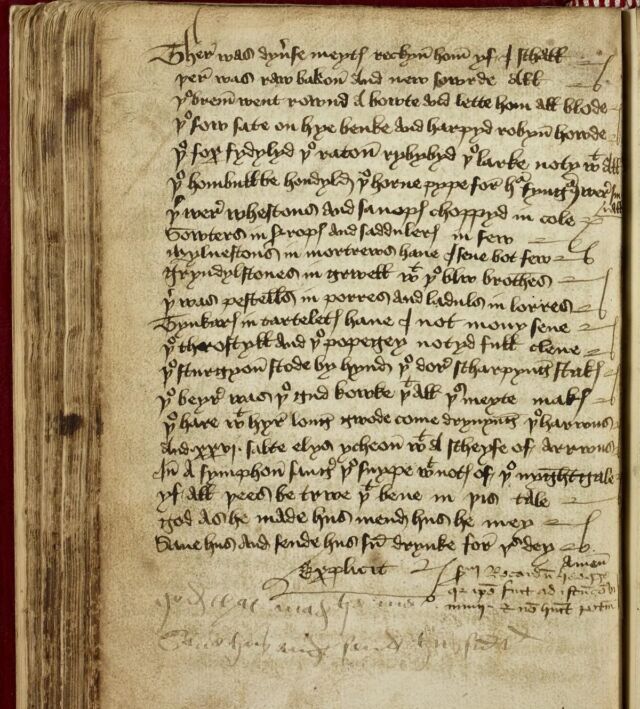 Ther was dyuse meyts rechyn hom yf I schall
þer was raw bakon and new sowrde all
þe brem went rownd a bowte and lette hom all blode
þe sow sate on hye benke and harpyd robyn howde
þe fox fydylyd þe raton rybybyd þe larke notyd wt all
þe hombull be hondyld þe horne pype for hr fyngrs wer small
þr wer whestons and sanops choppyd in cole
Sowters in syrops and saddulers in sew
Mylnestons in mortrews haue I sene bot few
Gryndylstones in grwell wt þe blw brothes
þr was pestells in porres and laduls in lorres
Tynkars in tartelets haue I not mony sene
þe throstyll and þe popegey notyd full clene
þe sturgyon stode by hynd þe dore scharpyng staks
þe beyre was þe gud kowke þt all þis meyte maks
þe hare wt hyr long gwode come drynyng þe harwus
And xxvi salte elys ycheon wt A scheyfe of arrwus
In A symphon sang þe snype wt nots of þe nyghttgale
yf all þees be trwe þt bene in þis tale
god as he made hus mend hus he mey
Saue hus and sende hus sū drynke for þis dey
Amen
Explicit